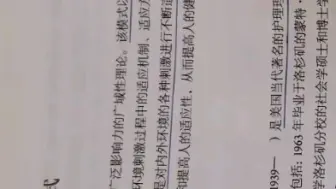 式
广泛影响力的广域性理论。该模式以
环境刺激过程中的适应机制、适应方
是对内外环境的各种刺激进行不断适
和提高人的适应性，从而提高人的健
1939— ）是美国当代著名的护理理
包括：1963年毕业于洛杉矶的蒙特，
洛杉矶分校的社会学硕士和博士学